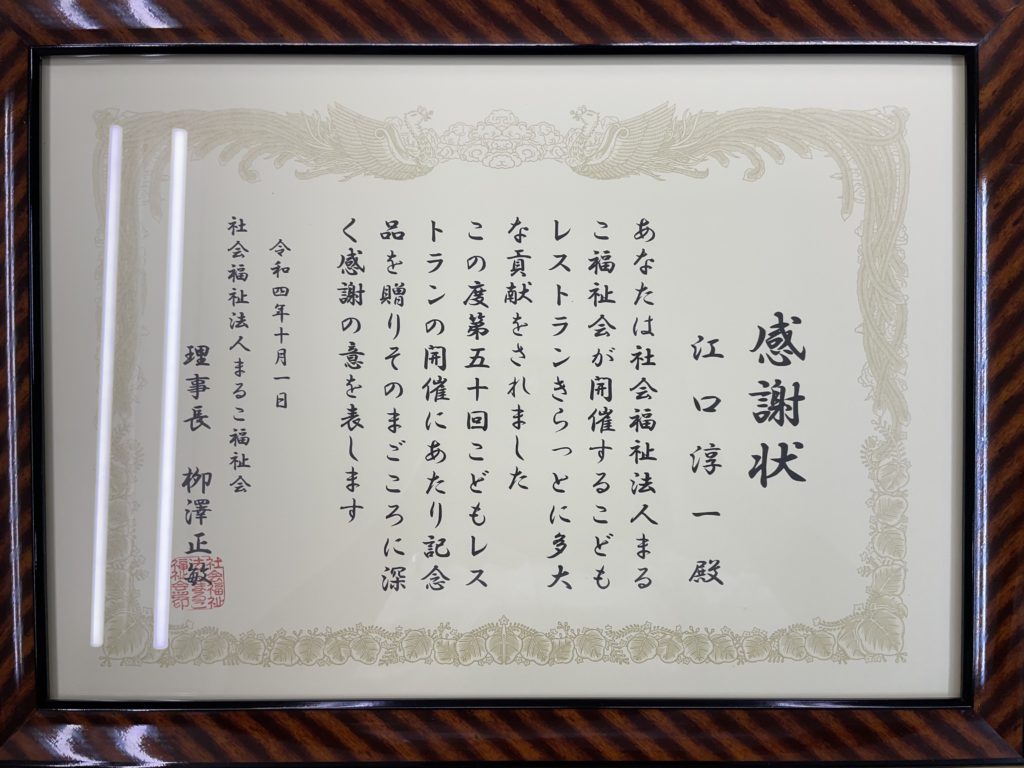 感謝状
江口淳一 殿
あなたは社会福祉法人まる
こ福祉会が開催するこども
レストランきらっとに多大
な貢献をされました
この度第五十回こどもレス
トランの開催にあたり記念
品を贈りそのまごころに深
く感謝の意を表します
令和四年十月一日
社会福祉法人まるこ福祉会
理事長 柳澤正敏
社会福祉
法人まるこ
福祉会印